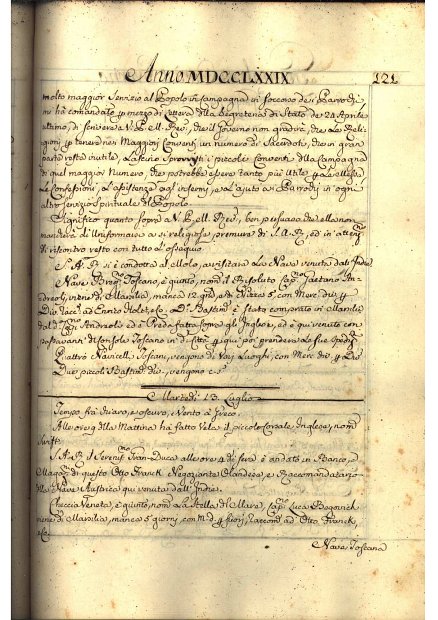 Anno MDCCLXXIX. 121
molto maggior servizio al Popolo in Campagna in soccorso de i Parrochi
mi ha comandato p mezzo di lettera della Segreteria di Stato de 24 Aprile
ultimo, di scrivere a V. P. M. Rev., che il Governo non gradirà, che le Reli-
gioni p tenere nei Maggiori Conventi un numero di Sacerdoti, che in gran
parte resta inutile, lascino sprovvisti i piccoli Conventi della Campagna
di quel maggior numero, che potrebbe essere tanto più utile p le Messe,
le Confessioni, l'assistenza agl'infermi, e l'ajuto a i Parrochi in ogni
altro servizio spirituale del Popolo.
Significo quanto sopra a V. P. M. Rev., ben persuaso che ella non
mancherà d'uniformarsi a sì religiose premure di S. A. R., ed in attenz.
di riscontro resto con tutto l'ossequio
S. A. R. si è condotta al Molo, a visitare la Nave venuta dall'Indie.
Nave Toscana, è giunto, nom. il Risoluto Cap. Gaetano An-
dreoli, viene di Marsilia, manca 12 giorni, e di Nizza 5, con Merc. div. p
Div. racc. ad Enrico &c. Bastim. è stato comprato in Marsilia
dal d. Cap. Andreoli ed è Preda fatta sopra gl'Inglesi, ed è qui venuto con
Passavanti del Console Toscano in d. Città p qui poi prendere le sue spediz.
Quattro Navicelli Toscani, vengono di varj Luoghi, con Merc. div. p Div.
Due piccoli Bastim. div., vengono c. s.
Martedì 13. Luglio
Tempo frà chiaro, e oscuro, Vento a Greco.
Alle ore 9 della Mattina hà fatto Vela il piccolo Corsale Inglese, nom.
Swift.
S. A. R. il Serenis. Gran-Duca alle ore 4 di sera è andato in Banco, e
Magaz. di questo Otto Franck Negoziante Olandese, e Raccomandatario
della Nave Austriaca qui venuta dall'Indie.
Checcia Veneta, è giunto, nom. La Stella del Mare, Cap. Luca
viene di Marsilia, manca 5 giorni, con M. d. p fuori, Raccom. ad Otto Franck,
&c.
Nave Toscana